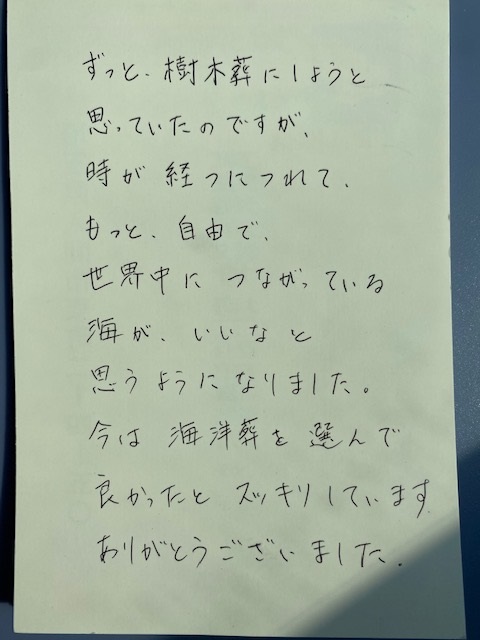 ずっと、樹木葬にしようと
思っていたのですが、
時が経つにつれて、
もっと、自由で、
世界中につながっている
海が、いいなと
思うようになりました。
今は海洋葬を選んで
良かったとスッキリしています
ありがとうございました.